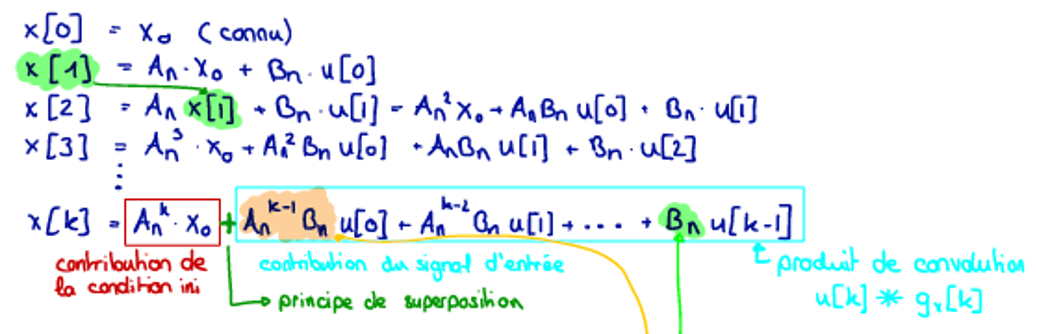 x[0] = x₀ (connu)
x[1] = Aₙ·x₀ + Bₙ·u[0]
x[2] = Aₙ x[1] + Bₙ·u[1] = Aₙ²x₀ + AₙBₙ u[0] + Bₙ·u[1]
x[3] = Aₙ³·x₀ + Aₙ²Bₙ u[0] + AₙBₙ u[1] + Bₙ·u[2]
⋮
x[k] = Aₙᵏ·x₀ + Aₙᵏ⁻¹Bₙ u[0] + Aₙᵏ⁻²Bₙ u[1] + ... + Bₙ u[k-1]
contribution de
la condition ini
contribution du signal d'entrée
produit de convolution
u[k] * gᵣ[k]
principe de superposition